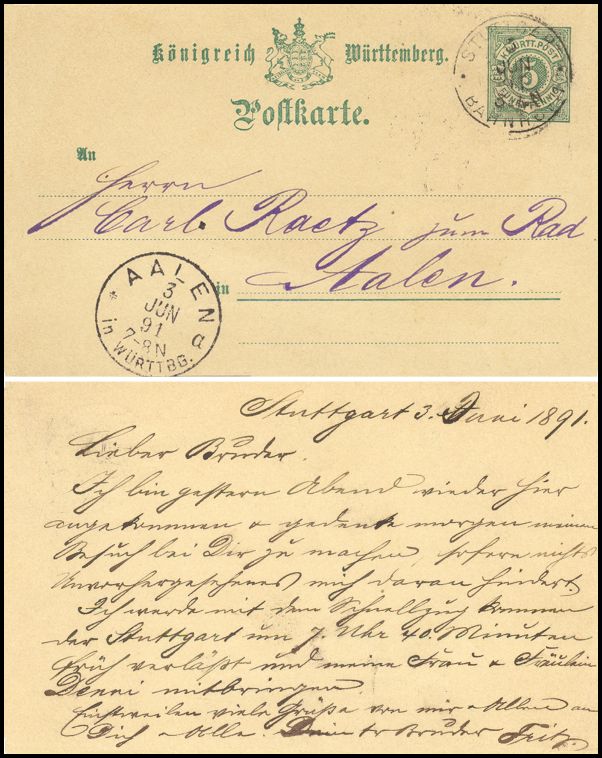 Königreich Württemberg.
Postkarte.
WÜRTT. POST
5
An
Herrn
Carl. Raetz zum Rad
in Aalen.
AALEN a
3
JUN
91
7-8N
* in WÜRTTBG.
Stuttgart 3. Juni 1891.
Lieber Bruder.
Ich bin gestern Abend wieder hier
angekommen & gedenke morgen meinen
Besuch bei Dir zu machen, sofern nichts
Unvorhergesehenes mich daran hindert.
Ich werde mit dem Schnellzug kommen
der Stuttgart um 7. Uhr 40. Minuten
früh verläßt und meine Frau & Fräulein
Denni mitbringen
Einstweilen viele Grüße von mir & Allen an
Dich & Alle. Dein tr Bruder Fritz.